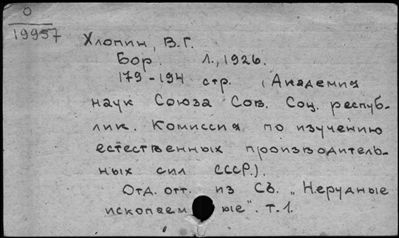 0
19957
Хлопин, В.Г.
Бор. Л., 1926.
179-194 стр. (Академия
наук Союза Сов. Соц. респуб-
лик. Комиссия по изучению
естественных производитель-
ных сил СССР.).
Отд. отт. из Сб. „Нерудные
ископаем ые". т.1.